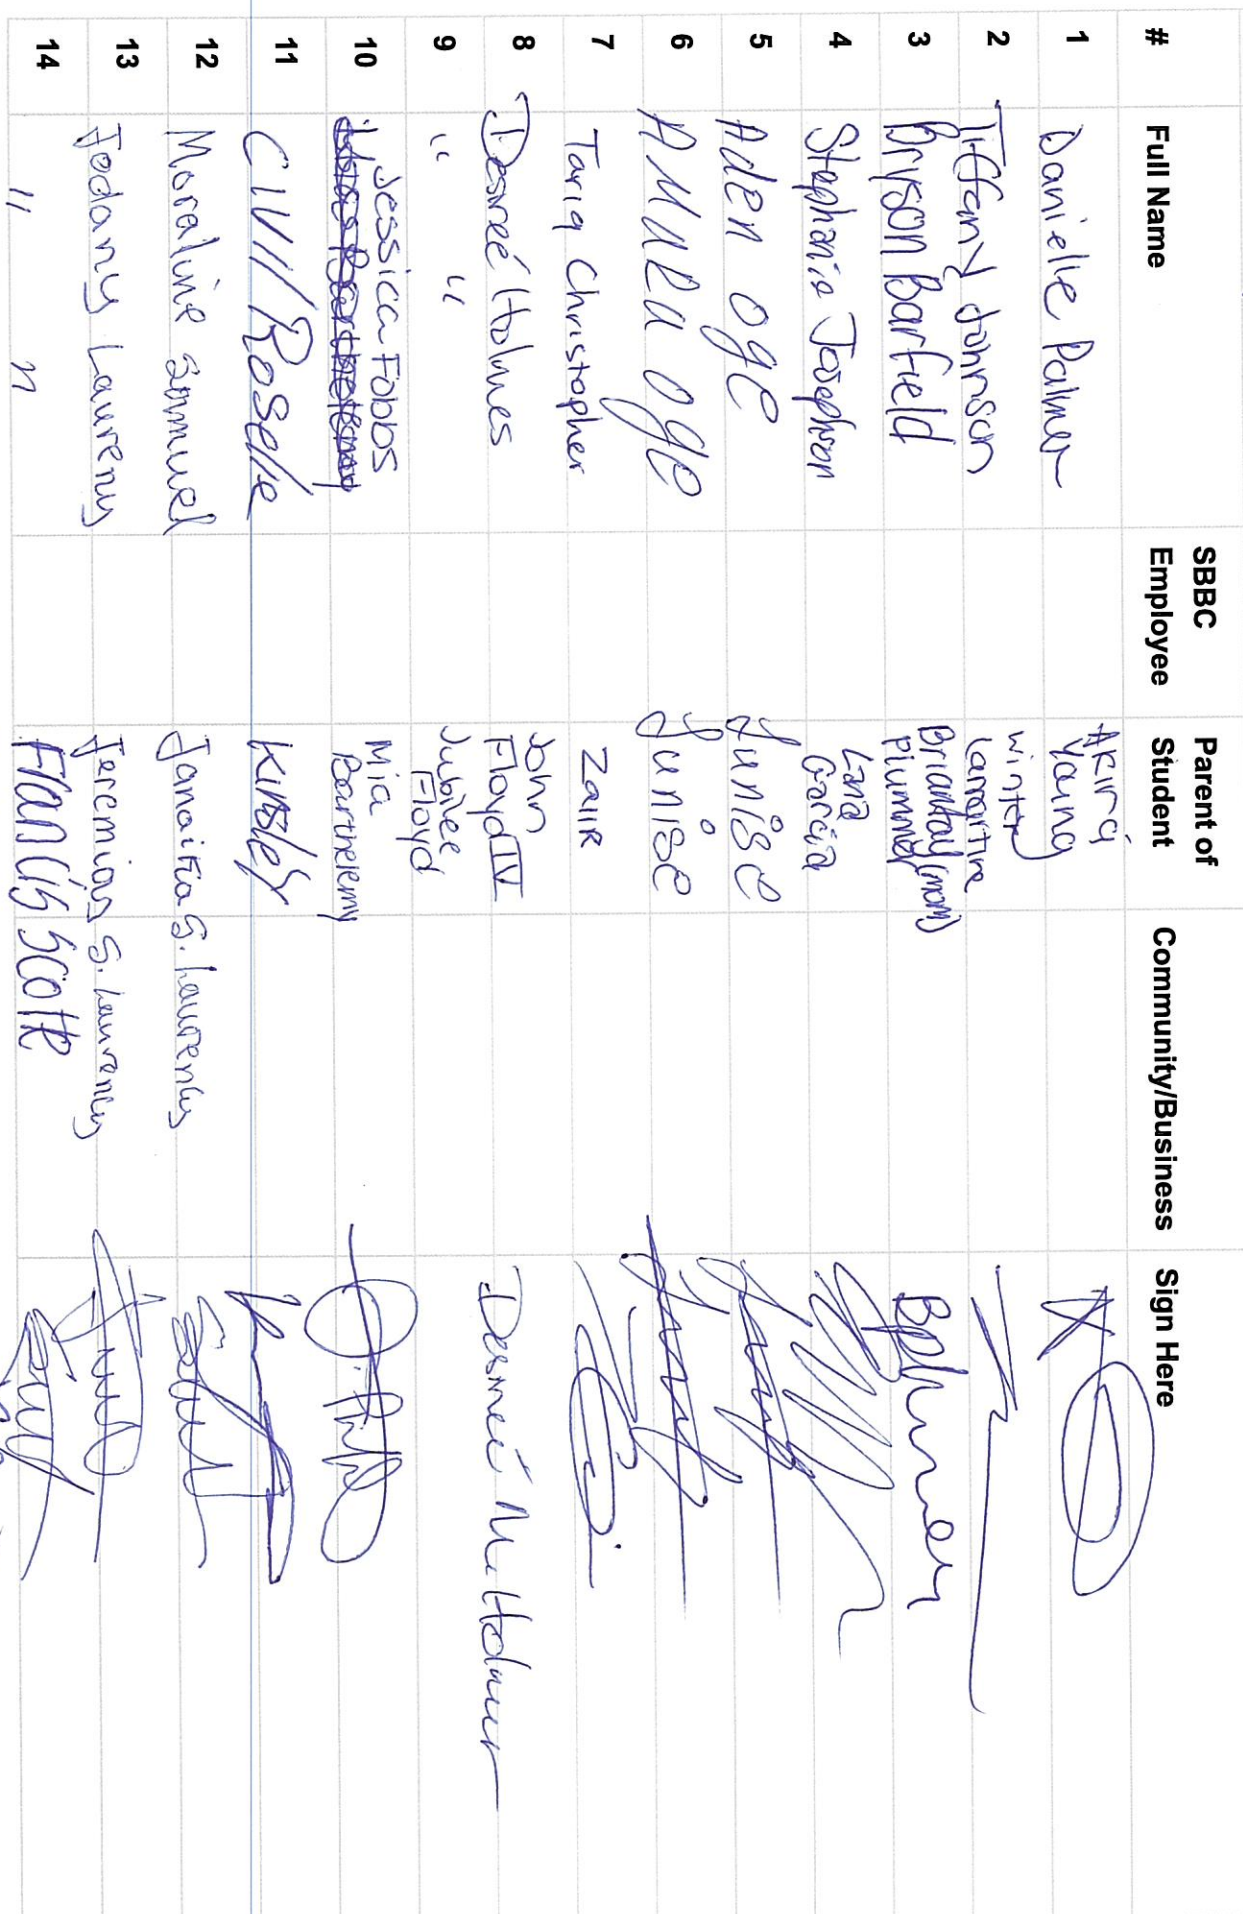 # Full Name SBBC Employee Parent of Student Community/Business Sign Here
1 Danielle Palmer Akira Young
2 Tiffany Johnson Winter Lamartine
3 Bryson Barfield Briantay (mom) Plummer BPlummer
4 Stephanie Josephson Lana Garcia
5 Aden oge Junise
6 AMURA oge Junise
7 Tariq Christopher ZAIR
8 Desireé Holmes John Floyd IV Desireé M Holmes
9 " " Jubilee Floyd
10 Jessica Fobbs Mia Barthelemy
11 CIVIL Roselie Kinsley
12 Moraline Sammuel Janaitia S. Laurency
13 Jedany Laurency Jeremias S. Laurency
14 " " Francis Scott